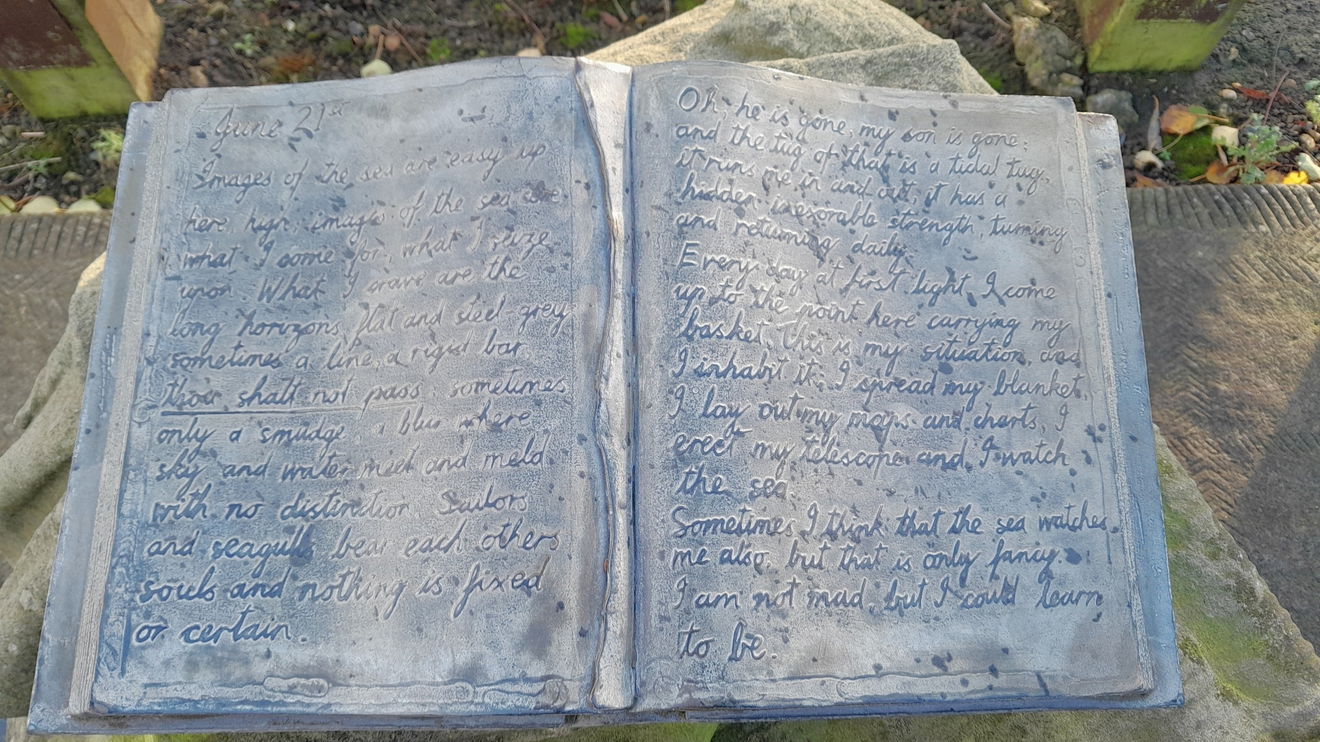 June 21st
Images of the sea are easy up
here high, images of the sea are
what I come for, what I seize
upon. What I crave are the
long horizons, flat and steel-grey
sometimes a line, a rigid bar
thou shalt not pass sometimes
only a smudge, a blur where
sky and water meet and meld
with no distinction. Sailors
and seagulls bear each others
souls and nothing is fixed
or certain.
Oh, he is gone, my son is gone;
and the tug of that is a tidal tug,
it runs me in and out, it has a
hidden inexorable strength, turning
and returning daily.
Every day at first light I come
up to the point here carrying my
basket, this is my situation, and
I inhabit it; I spread my blanket,
I lay out my maps and charts, I
erect my telescope and I watch
the sea.
Sometimes I think that the sea watches
me also, but that is only fancy.
I am not mad, but I could learn
to be.